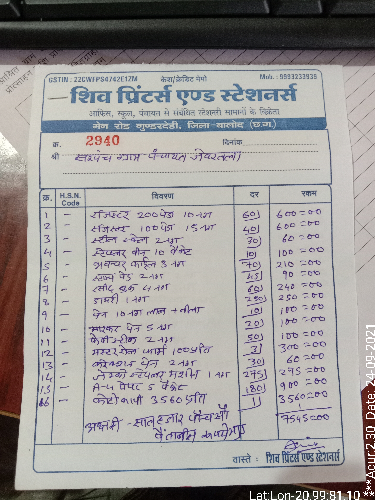 GSTIN : 22CWFPS4742E1ZM केश/क्रेडिट मेमो Mob.: 9893233935
शिव प्रिंटर्स एण्ड स्टेशनर्स
आफिस, स्कूल, पंचायत में संबंधित स्टेशनरी सामानों के विक्रेता
मेन रोड गुण्डरदेही, जिला-बालोद (छ.ग.)
क्र. 2940 दिनांक
श्री सरपंच ग्राम पंचायत
क्र. H.S.N. Code विवरण दर रकम
1 - रजिस्टर 200 पेज 10 नग 60) 600=00
2 - रजिस्टर 100 पेज 15 नग 40) 600=00
3 - 2 नग 30) 60=00
4 - स्टेपलर पीन 10 पैकेट 10) 100=00
5 - 3 नग 70) 210=00
6 - स्टाम्प पेड 2 नग 45) 90=00
7 - 4 नग 60) 240=00
8 - डायरी 1 नग 250) 250=00
9 - पेन 10 नग लाल + नीला 10) 100=00
10 - मारकर पेन 5 नग 20) 100=00
11 - 2 नग 50) 100=00
12 - मस्टर रोल फार्म 100 प्रति 3) 300=00
13 - पेन 2 नग 30) 60=00
14 - मशीन 1 नग 295) 295=00
15 - A-4 पेपर 5 पैकेट 180) 900=00
16 - फोटोकापी 3560 प्रति 1) 3560=00
अक्षरी - सात हजार पाँच सौ 7545=00
पैंतालीस रूपये मात्र
वास्ते : शिव प्रिंटर्स एण्ड स्टेशनर्स
Lat:Lon-20.99:81.10 ***Acur:2.30 Date: 24-09-2021